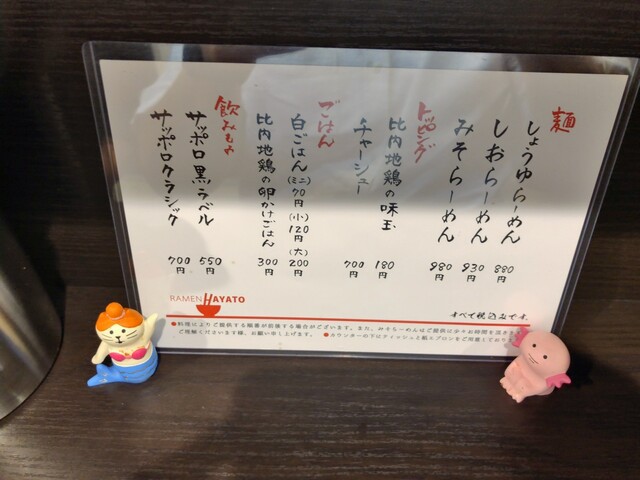 麺
しょうゆらーめん 880円
しおらーめん 930円
みそらーめん 980円
トッピング
比内地鶏の味玉 180円
チャーシュー 700円
ごはん
白ごはん(ミニ)70円(小)120円(大)200円
比内地鶏の卵かけごはん 300円
飲みもの
サッポロ黒ラベル 550円
サッポロクラシック 700円
すべて税込みです。
RAMEN HAYATO
●料理によりご提供する順番が前後する場合がございます。また、みそらーめんはご提供に少々お時間を頂きます
ご理解くださいます様、お願い申し上げます。 ●カウンターの下にティッシュと紙エプロンをご用意しており